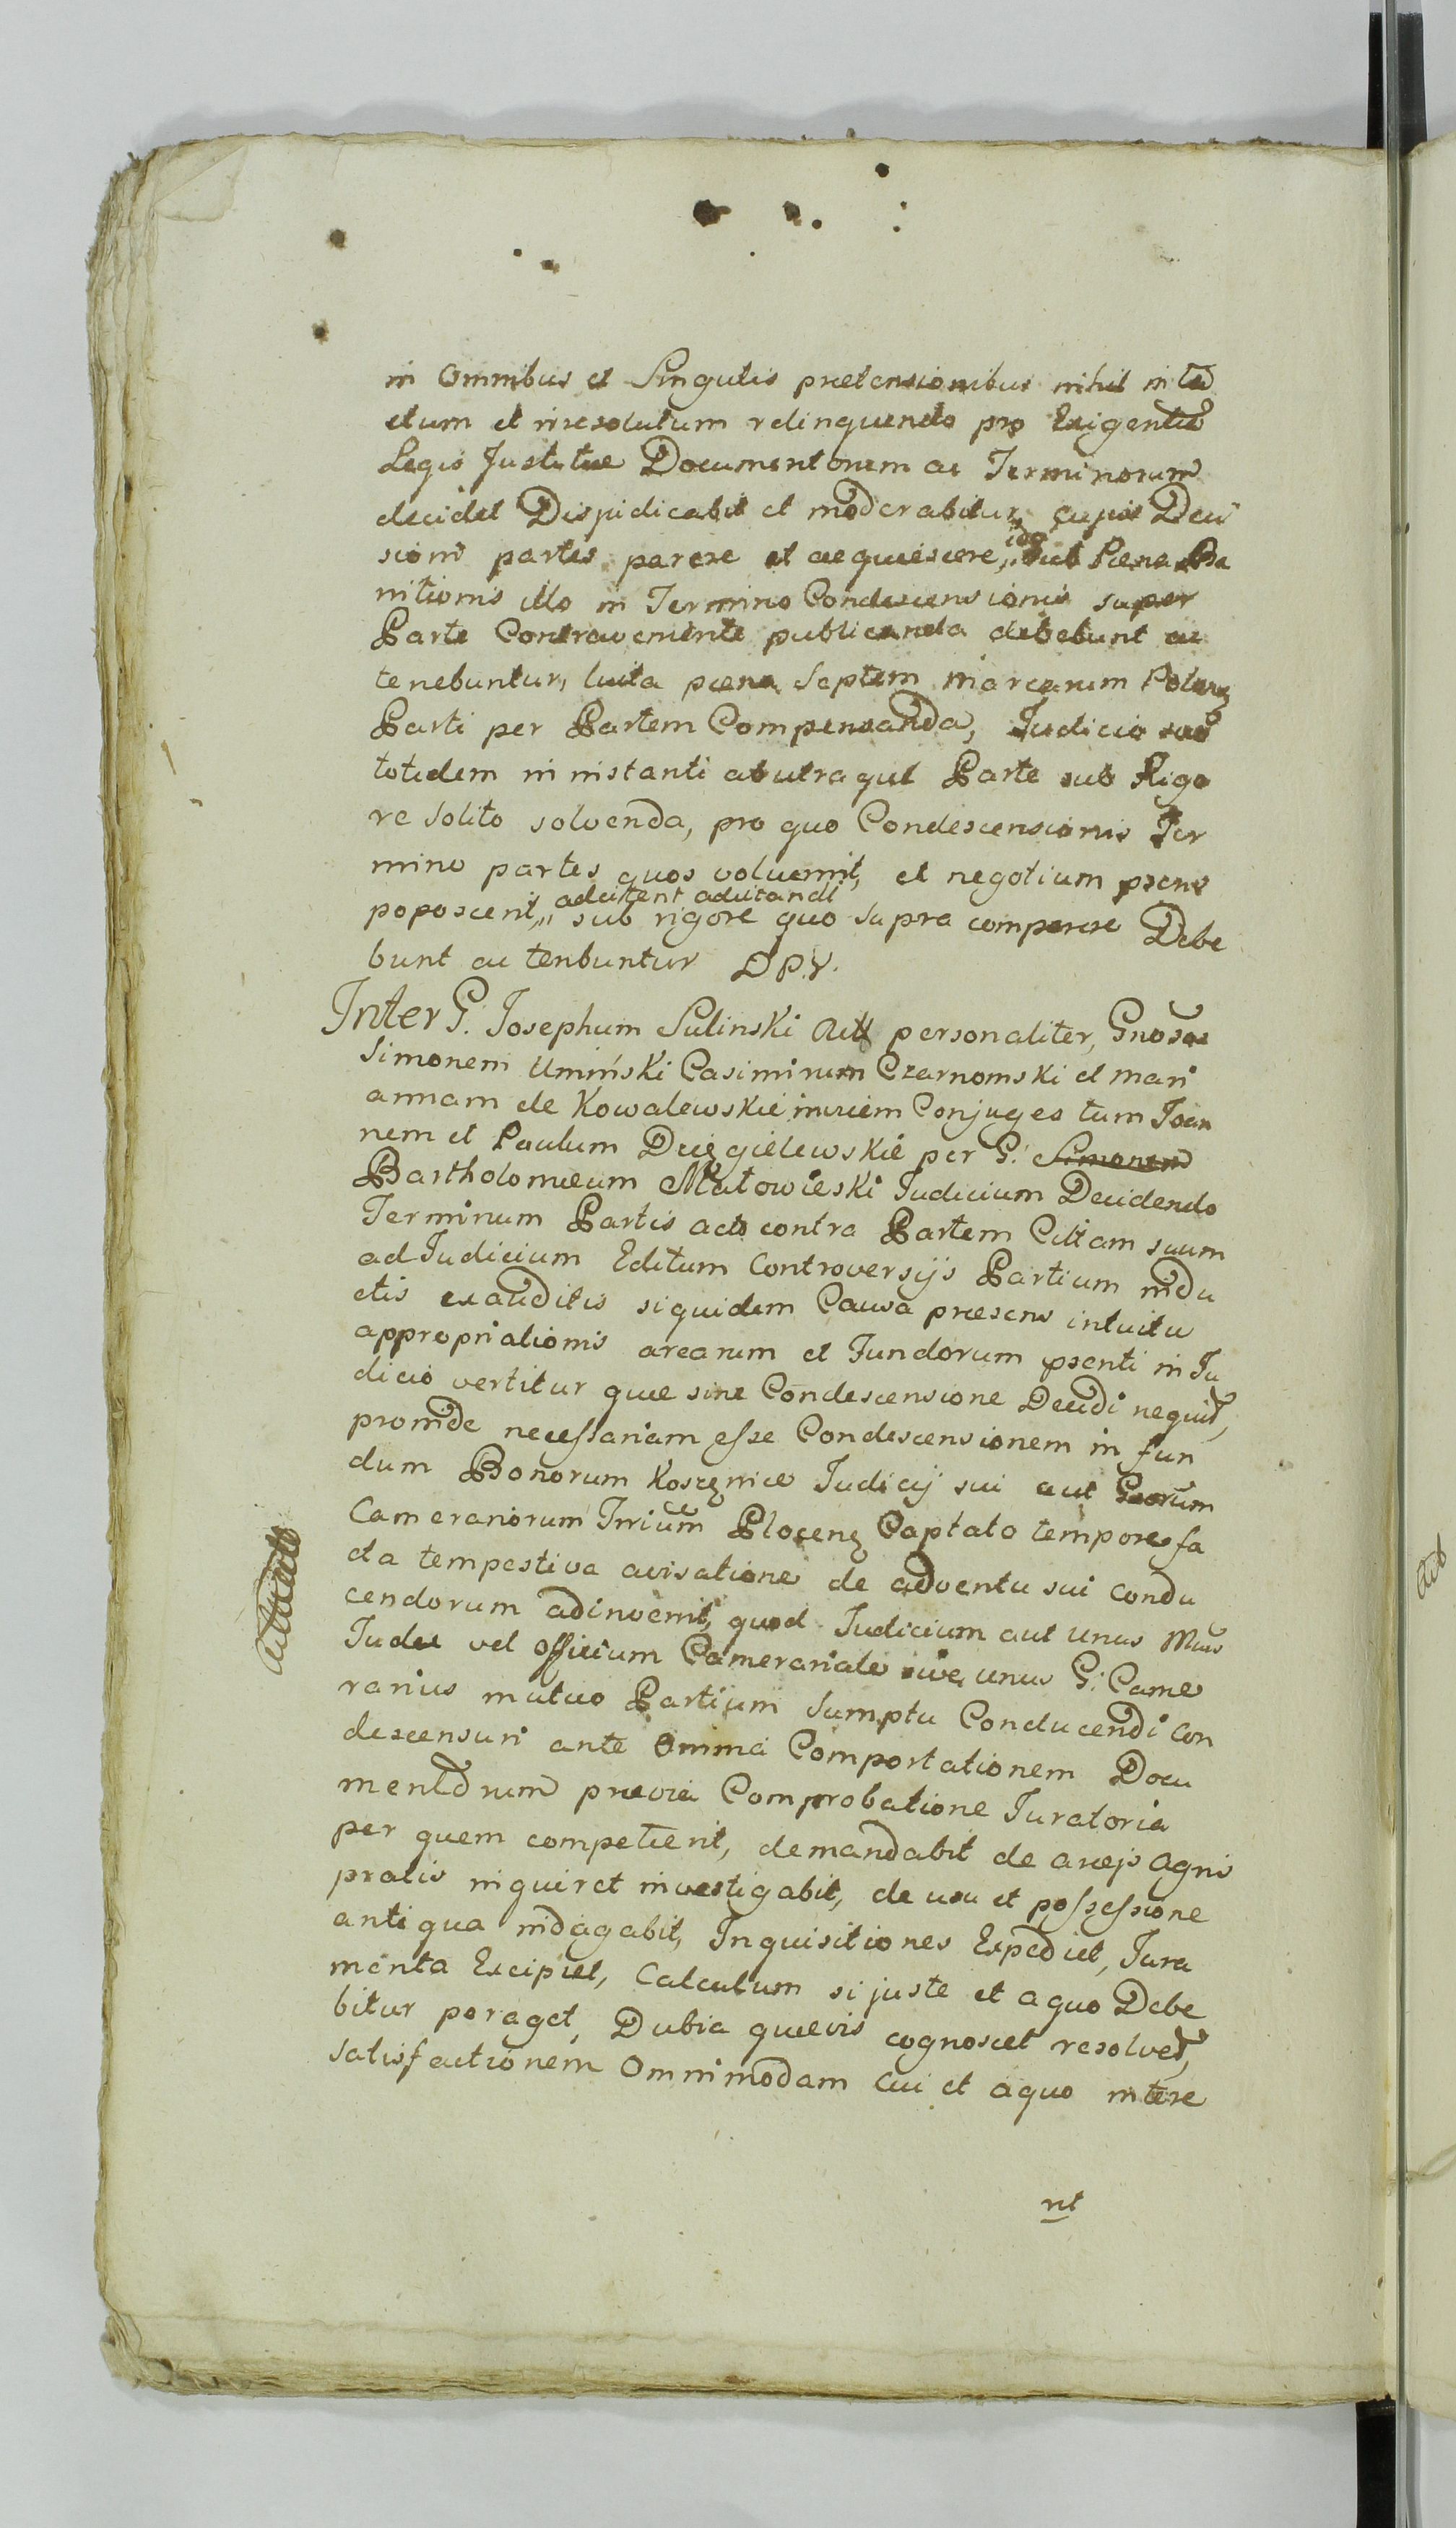 in Omnibus et Singulis praetensionibus nihil inta
ctum et irresolutum relinquendo pro Exigentia
Legis Justitiae Documentorum ac Terminorum
decidet Disjudicabit et moderabitur, cujus Deci
sioni partes parere et acquiescere, ibidẽ sub Paena Ba
nitionis illo in Termino Condescensionis super
Parte Contraveniente publicanda debebunt ac
tenebuntur, luita paena Septem Marcarum Polonz
Parti per Partem Compensanda, Judicio vero
totidem in instanti ab utraque Parte sub Rigo
re Solito solvenda, pro quo Condescensionis Ter
mino partes quos voluerint, et negotium prens
poposcerit, adcitent adcitandi sub rigore quo supra comparere Debe
bunt ac tenbuntur D P. V.
Inter G. Josephum Sulinski Act personaliter, Gnosos
Simonem Umiński Casimirum Czarnomski et Mari
annam de Kowalewskie invicem Conjuges tum Joan
nem et Paulum Dzięgielewskie per G. Simonem
Bartholomaeum Małowieski Judicium Decidendo
Terminum Partis act contra Partem Cittam suum
ad Judicium Editum Controversijs Partium indu
ctis exauditis siquidem Causa praesens intuitu
appropriationis arearum et Fundorum psenti in Ju
dicio vertitur quae sine Condescensione Decidi nequit,
proinde necessariam esse Condescensionem in fun
dum Bonorum Koscznice Judicij sui aut Gsorum
Camerariorum Trrium Plocenz Captato tempore fa
cta tempestiva avisatione de adventu sui Condu
cendorum adinvenit, quod Judicium aut Unus Mcus
Judex vel Officium Camerariale sive unus G: Came
rarius mutuo Partium Sumptu Conducendi Con
descensuri ante Omnia Comportationem Docu
mentorum praevia Comprobatione Juratoria
per quem competierit, demandabit de areijs Agris
pratis inquiret investigabit, de usu et possessione
antiqua indagabit, Inquisitiones Expediet, Jura
menta Excipiet, Calculum si juste et a quo Debe
bitur peraget, Dubia quaevis cognoscet resolvet,
satisfactionem Omnimodam Cui et a quo intere
nt